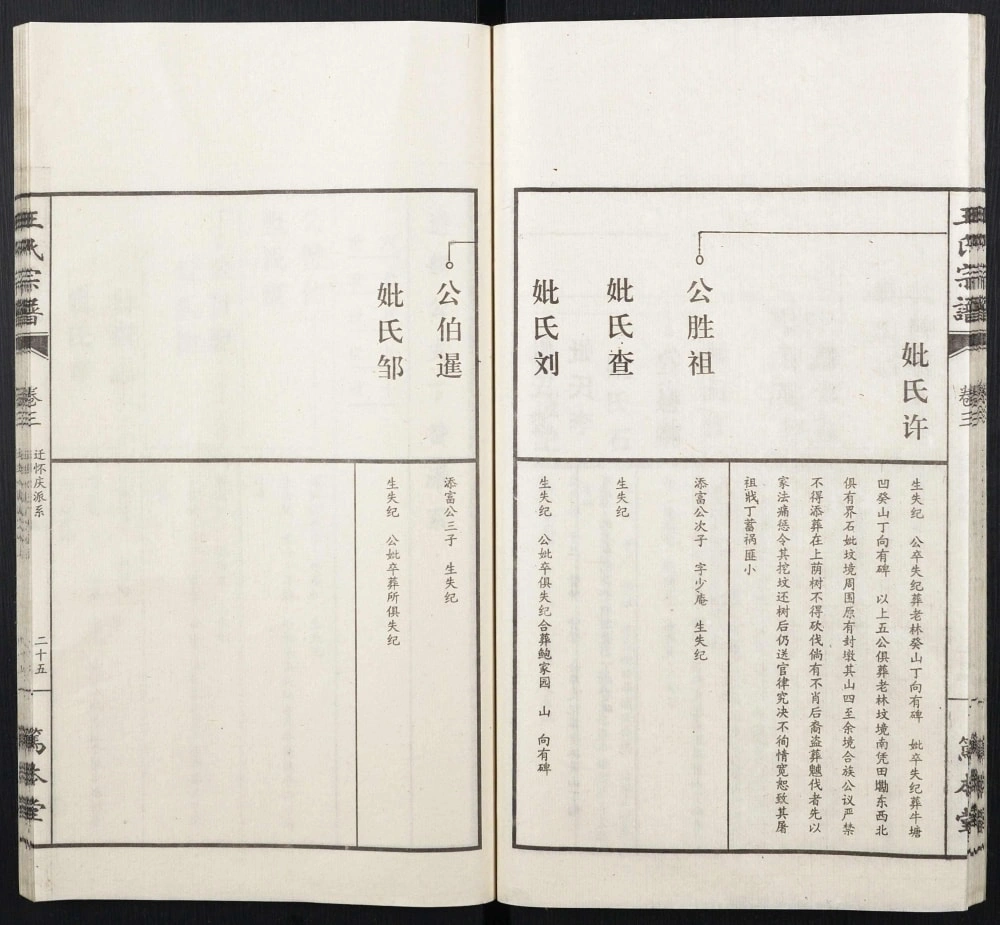 王氏宗谱
卷三
笃本堂
妣氏许
生失纪 公卒失纪葬老林癸山丁向有碑 妣卒失纪葬牛塘
凹癸山丁向有碑 以上五公俱葬老林坟境南凭田塝东西北
俱有界石妣坟境周围原有封墩其山四至余境合族公议严禁
不得添葬在上荫树不得砍伐倘有不肖后裔盗葬魆伐者先以
家法痛惩令其挖坟还树后仍送官律究决不徇情宽恕致其屠
祖戕丁蓄祸匪小
公胜祖
添富公次子 字少庵 生失纪
妣氏查
生失纪
妣氏刘
生失纪 公妣卒俱失纪合葬鲍家园 山 向有碑
公伯暹
添富公三子 生失纪
妣氏邹
生失纪 公妣卒葬所俱失纪
王氏宗谱
卷三
迁怀庆派系
二十五
笃本堂